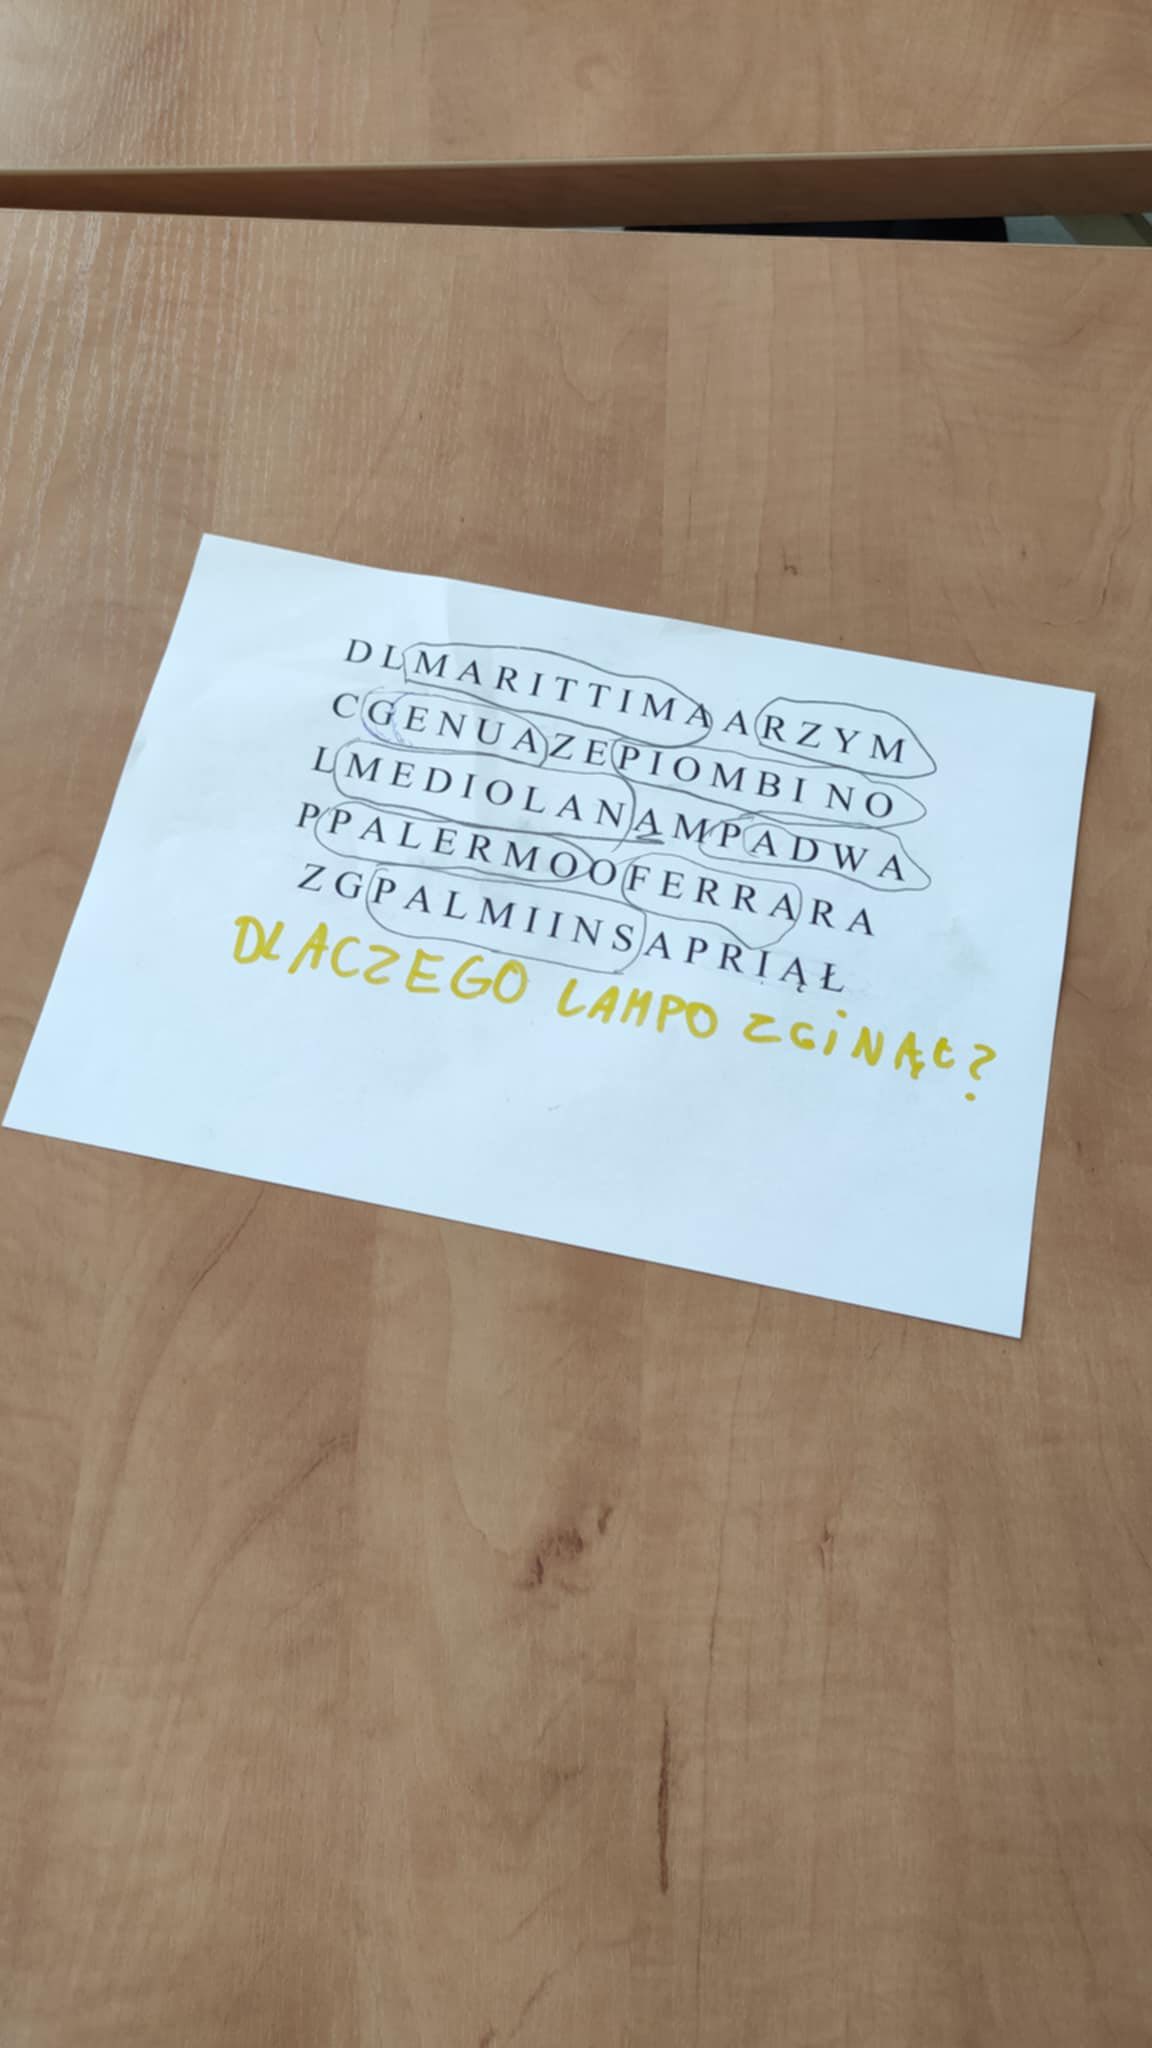 DLMARITTIMAARZYM
CGENUAZEPIOMBINO
LMEDIOLANAMPADWA
PPALERMOOFERRARA
ZGPALMIINSAPRIĄŁ
DLACZEGO LAMPO ZGINĄŁ?